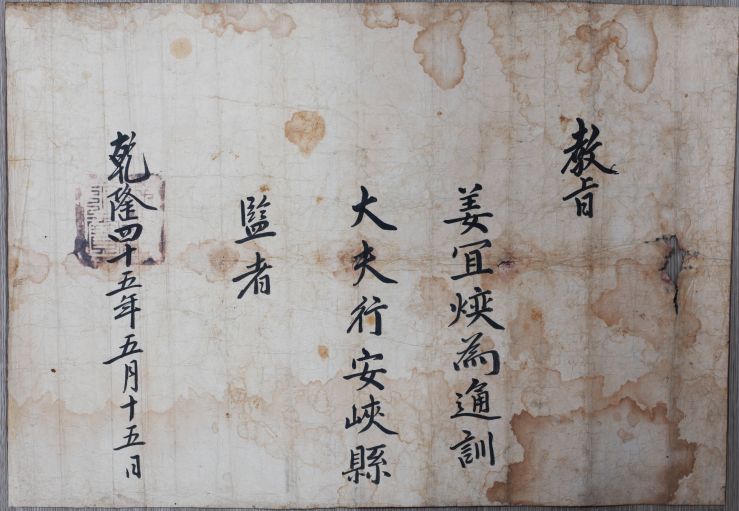 教旨
姜冝煐為通訓
大夫行安峽縣
監者
乾隆四十五年五月十五日